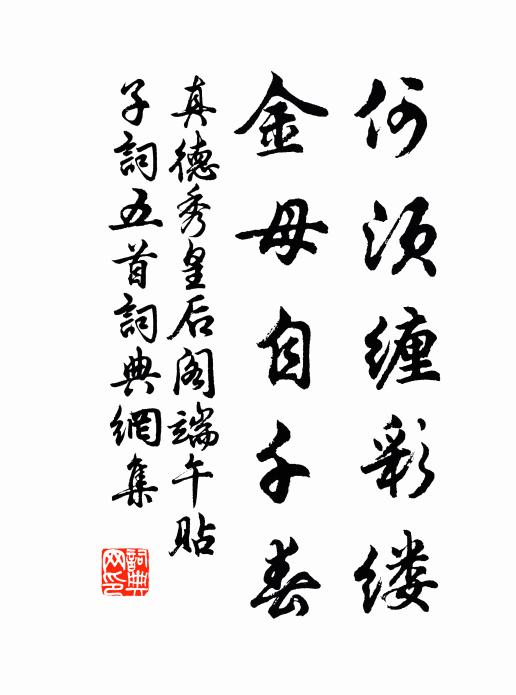 何须缠彩缕
金母自千春
真德秀皇后阁端午贴
子詞五首詞典網集
詞典網印